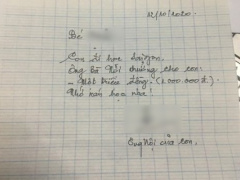 12/10/2020.
Bé
Con đi học ngoan.
Ông bà nội thưởng cho con.
- Một triệu đồng. (1.000.000đ.)
Nhớ học nữa!
Ông Nội của con.